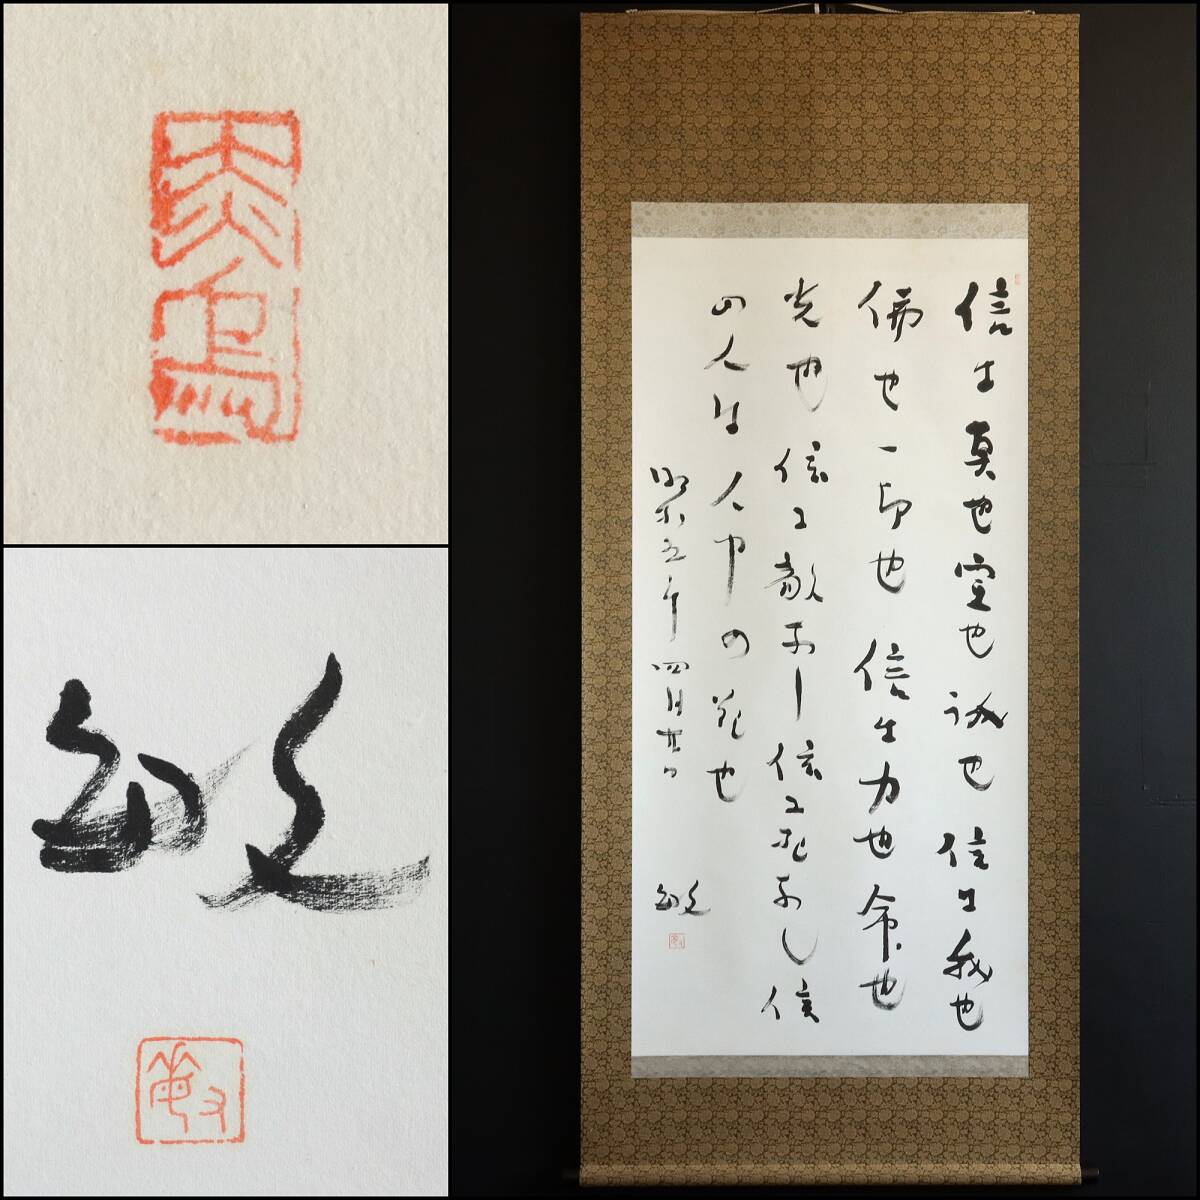 信は真也空也誠也信は我也
佛也一切也信は力也命也
光也信に敵なし信に死なし信
の人は人中の花也
昭和五年四月廿日
敏
敏
敏